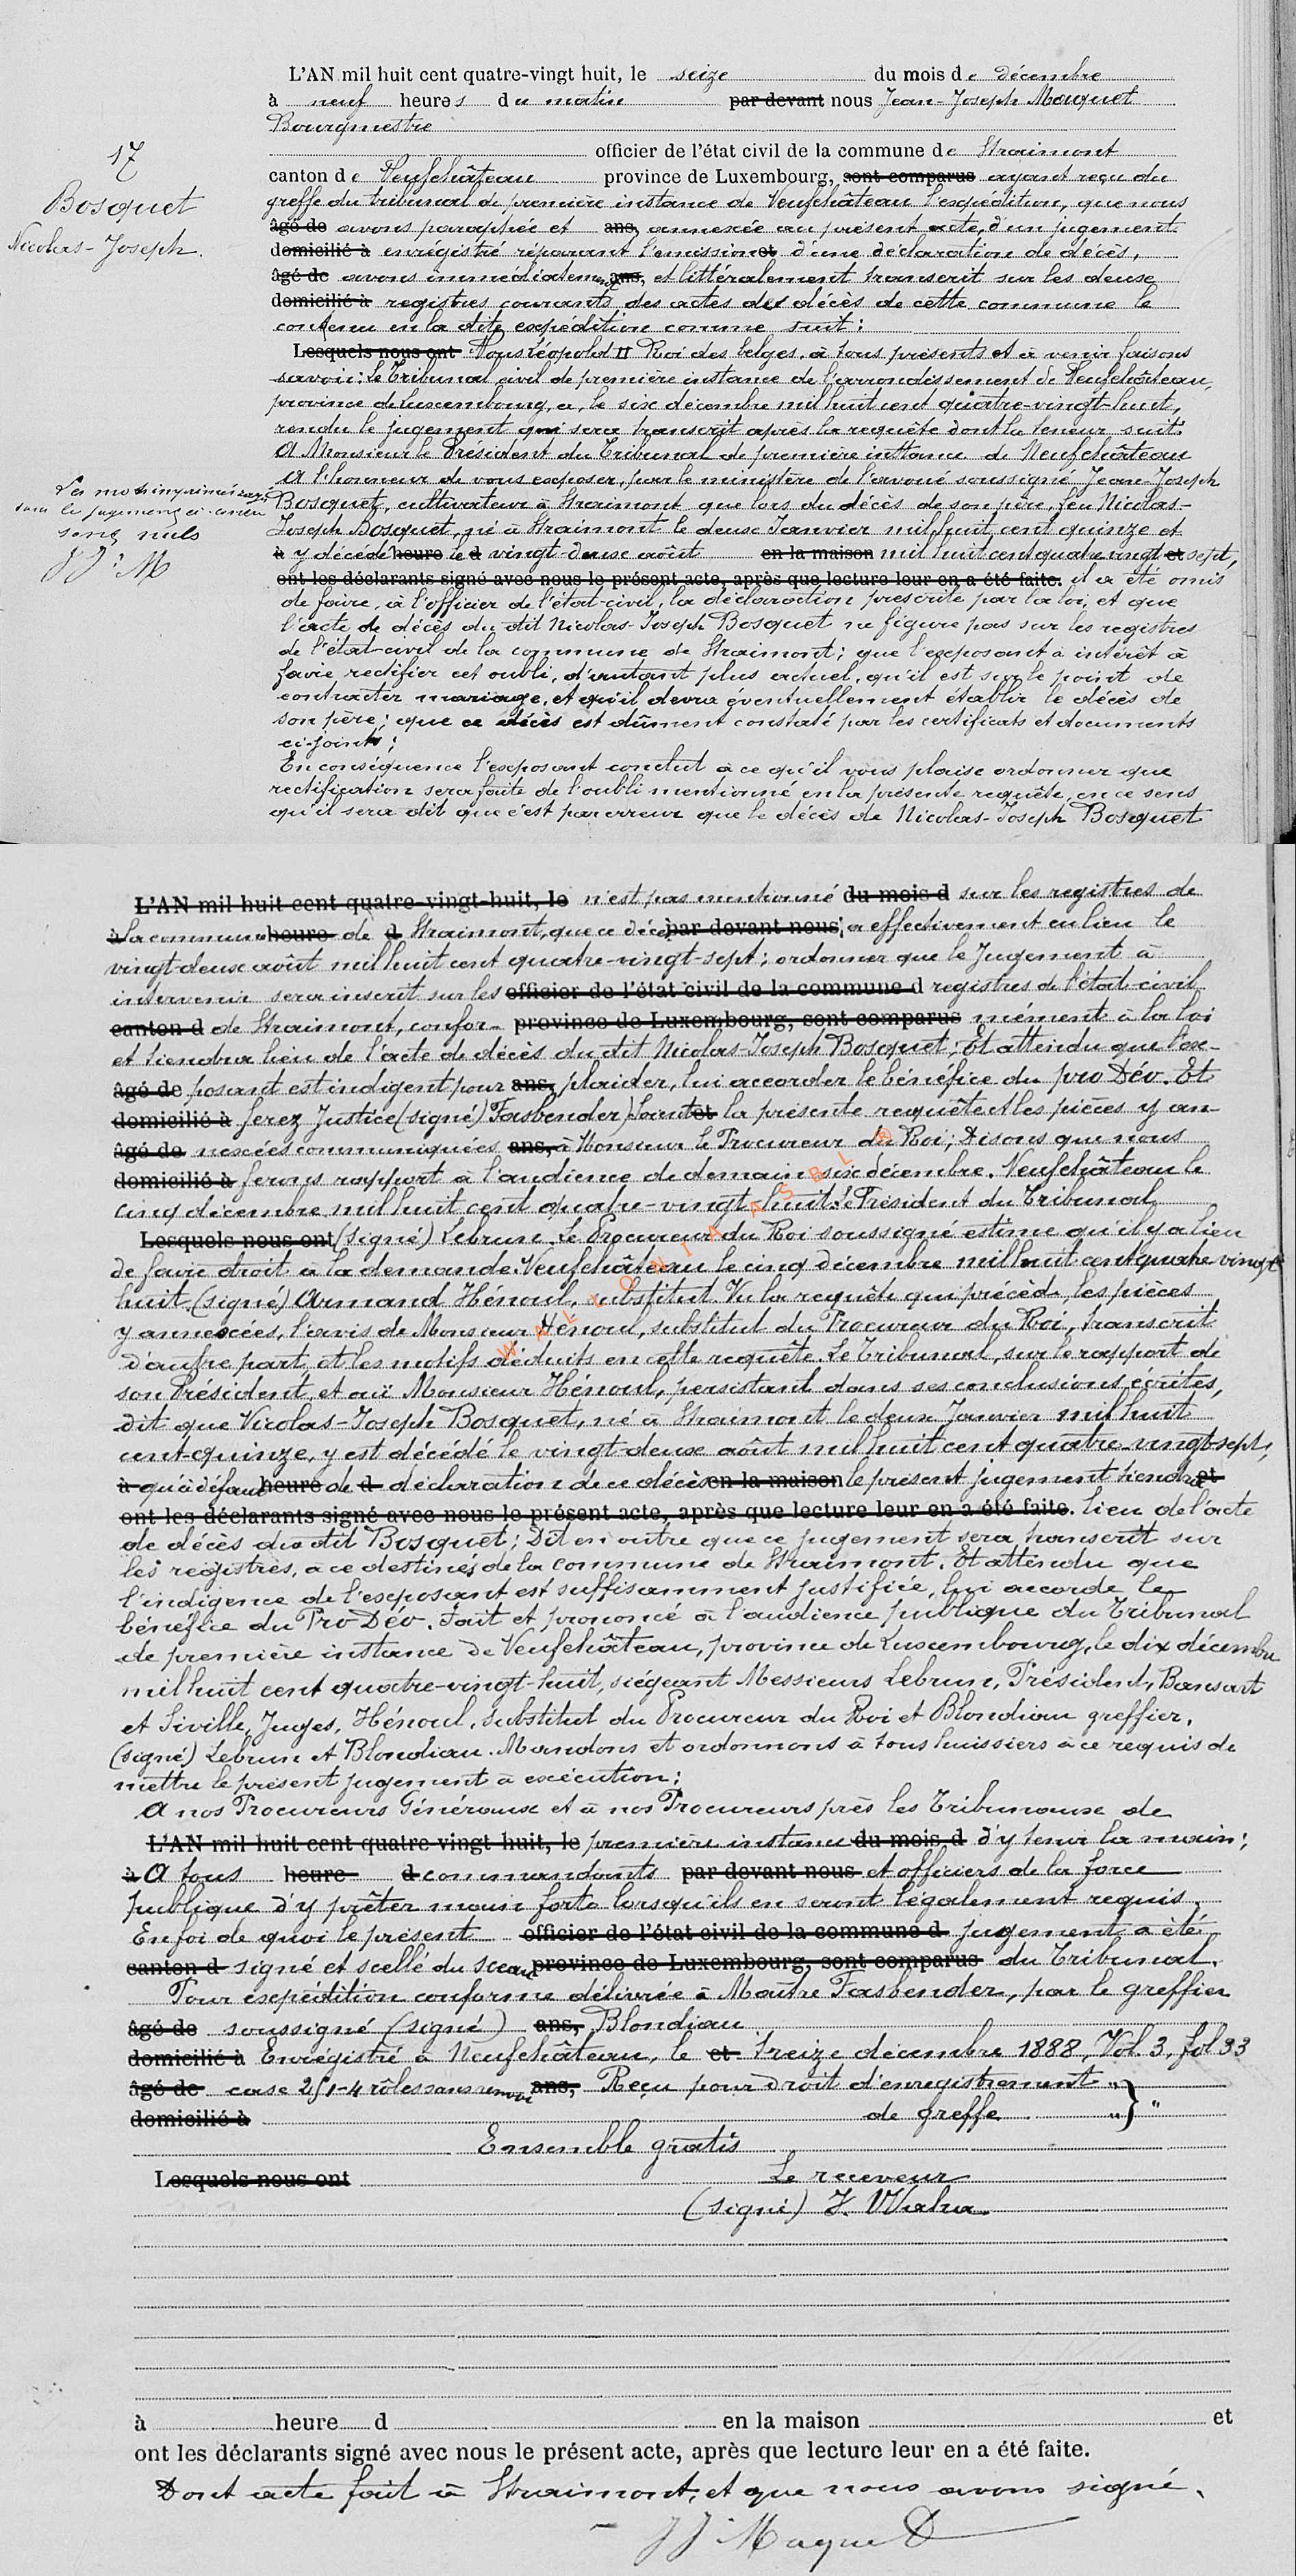 L'AN mil huit cent quatre-vingt huit, le seize du mois de décembre
à neuf heures du matin par devant nous Jean-Joseph Maquet
Bourgmestre
officier de l'état civil de la commune de Straimont
17
canton de Neufchâteau province de Luxembourg, sont comparus ayant reçu du
Bosquet
greffe du tribunal de première instance de Neufchâteau l'expédition, que nous
âgé de avons paraphée et ans, annexée au présent acte, d'un jugement
Nicolas-Joseph.
domicilié à enrégistré réparant l'omission et d'une déclaration de décès,
âgé de avons immédiatement ans, et littéralement transcrit sur les deux
domicilié à registres courants des actes des décès de cette commune le
contenu en la dite expédition comme suit :
Lesquels nous ont Nous Léopold II Roi des belges, à tous présents et à venir faisons
savoir : Le Tribunal civil de première instance de l'arrondissement de Neufchâteau,
province de Luxembourg, a, le six décembre mil huit cent quatre-vingt-huit,
rendu le jugement qui sera transcrit après la requête dont la teneur suit:
A Monsieur le Président du Tribunal de première instance de Neufchâteau
A l'honneur de vous exposer, par le ministère de l'avoué soussigné Jean-Joseph
Les mots imprimés rayés
Bosquet, cultivateur à Straimont que lors du décès de son père, feu Nicolas-
dans le jugement ci-contre
Joseph Bosquet, né à Straimont le deux Janvier mil huit cent quinze et
sont nuls
à y décédé heure le d vingt-deux août en la maison mil huit cent quatre vingt et sept,
JJ. M
ont les déclarants signé avec nous le présent acte, après que lecture leur en a été faite. il a été omis
de faire, à l'officier de l'état-civil, la déclaration prescrite par la loi, et que
l'acte de décès du dit Nicolas-Joseph Bosquet ne figure pas sur les registres
de l'état-civil de la commune de Straimont ; que l'exposant à intérêt à
faire rectifier cet oubli, d'autant plus actuel, qu'il est sur le point de
contracter mariage, et qu'il devra éventuellement établir le décès de
son père ; que ce décès est dûment constaté par les certificats et documents
ci-joints ;
En conséquence l'exposant conclut à ce qu'il vous plaise ordonner que
rectification sera faite de l'oubli mentionné en la présente requête, en ce sens
qu'il sera dit que c'est par erreur que le décès de Nicolas-Joseph Bosquet
L'AN mil huit cent quatre-vingt-huit, le n'est pas mentionné du mois d sur les registres de
à la commune heure de d Straimont, que ce décès par devant nous a effectivement eu lieu le
vingt-deux août mil huit cent quatre-vingt-sept ; ordonner que le Jugement à
intervenir sera inscrit sur les officier de l'état civil de la commune d registres de l'état-civil
canton d de Straimont, confor- province de Luxembourg, sont comparus mément à la loi
et tiendra lieu de l'acte de décès du dit Nicolas-Joseph Bosquet ; Et attendu que l'ex-
âgé de posant est indigent pour ans, plaider, lui accorder le bénéfice du pro Déo. Et
domicilié à ferez Justice (signé) Fasbender) Soient et la présente requête et les pièces y an-
âgé de nexées communiquées ans, à Monsieur le Procureur du Roi ; Disons que nous
domicilié à ferons rapport à l'audience de demain six décembre. Neufchâteau le
cinq décembre mil huit cent quatre-vingt-huit. Le Président du Tribunal
Lesquels nous ont (signé) Lebrun. Le Procureur du Roi soussigné estime qu'il y a lieu
de faire droit à la demande. Neufchâteau le cinq décembre mil huit cent quatre vingt
huit, (signé) Armand Hénoul, substitut. Vu la requête qui précède, les pièces
y annexées, l'avis de Monsieur Hénoul, substitut du Procureur du Roi, transcrit
d'autre part, et les motifs déduits en cette requête. Le Tribunal, sur le rapport de
son Président, et ouï Monsieur Hénoul, persistant dans ses conclusions écrites,
dit que Nicolas-Joseph Bosquet, né à Straimont le deux Janvier mil huit
cent-quinze, y est décédé le vingt-deux août mil huit cent quatre vingt-sept,
à qu'à défaut heure de d déclaration de ce décès en la maison le présent jugement tiendra et
ont les déclarants signé avec nous le présent acte, après que lecture leur en a été faite. lieu de l'acte
de décès du dit Bosquet ; Dit en outre que ce jugement sera transcrit sur
les registres, à ce destinés de la commune de Straimont. Et attendu que
l'indigence de l'exposant est suffisamment justifiée, lui accorde le
bénéfice du Pro Déo. Fait et prononcé à l'audience publique du Tribunal
de première instance de Neufchâteau, province de Luxembourg, le dix décembre
mil huit cent quatre-vingt-huit, siégeant Messieurs Lebrun, Président, Bansart
et Siville, Juges, Hénoul, substitut du Procureur du Roi et Blondiau greffier,
(signé) Lebrun et Blondiau. Mandons et ordonnons à tous huissiers à ce requis de
mettre le présent jugement à exécution ;
A nos Procureurs Généraux et à nos Procureurs près les Tribunaux de
L'AN mil huit cent quatre vingt huit, le première instance du mois d d'y tenir la main ;
à A tous heure d commandants par devant nous et officiers de la force
publique d'y prêter main forte lorsqu'ils en seront légalement requis.
En foi de quoi le présent officier de l'état civil de la commune d jugement a été
canton d signé et scellé du sceau province de Luxembourg, sont comparus du Tribunal.
Pour expédition conforme délivrée à Maître Fasbender, par le greffier
âgé de soussigné (signé) ans, Blondiau
domicilié à Enrégistré à Neufchâteau, le et treize décembre 1888, Vol. 3, fol 33
âgé de case 251-4 rôles sans renvoi ans, Reçu pour droit d'enregistrement "
domicilié à de greffe " } "
Ensemble gratis
Lesquels nous ont Le receveur
(signé) J. Waha.
à heure d en la maison et
ont les déclarants signé avec nous le présent acte, après que lecture leur en a été faite.
Dont acte fait à Straimont, et que nous avons signé.
JJ Maquet
WALLONIA ASBL ®